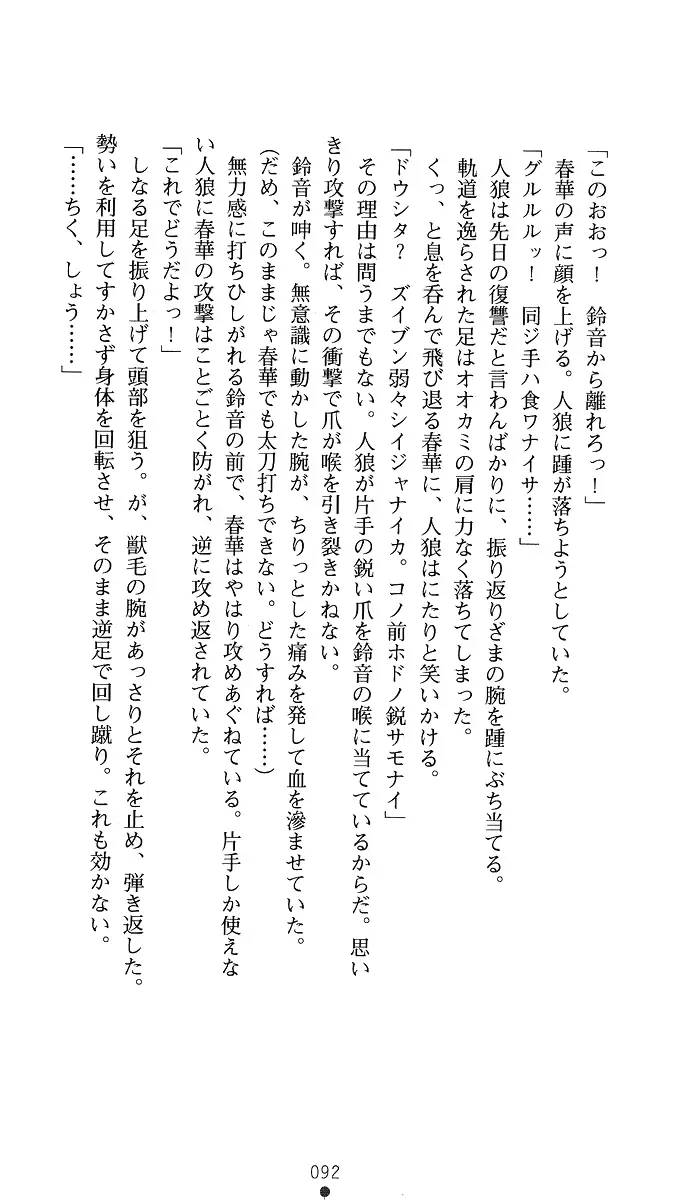 「このおおっ！　鈴音から離れろっ！」
　春華の声に顔を上げる。人狼に踵が落ちようとしていた。
「グルルルッ！　同ジ手ハ食ワナイサ……」
　人狼は先日の復讐だと言わんばかりに、振り返りざまの腕を踵にぶち当てる。
　軌道を逸らされた足はオオカミの肩に力なく落ちてしまった。
　くっ、と息を呑んで飛び退る春華に、人狼はにたりと笑いかける。
「ドウシタ？　ズイブン弱々シイジャナイカ。コノ前ホドノ鋭サモナイ」
　その理由は問うまでもない。人狼が片手の鋭い爪を鈴音の喉に当てているからだ。思い
きり攻撃すれば、その衝撃で爪が喉を引き裂きかねない。
　鈴音が呻く。無意識に動かした腕が、ちりっとした痛みを発して血を滲ませていた。
（だめ、このままじゃ春華でも太刀打ちできない。どうすれば……）
　無力感に打ちひしがれる鈴音の前で、春華はやはり攻めあぐねている。片手しか使えな
い人狼に春華の攻撃はことごとく防がれ、逆に攻め返されていた。
「これでどうだよっ！」
　しなる足を振り上げて頭部を狙う。が、獣毛の腕があっさりとそれを止め、弾き返した。
勢いを利用してすかさず身体を回転させ、そのまま逆足で回し蹴り。これも効かない。
「……ちく、しょう……」
092